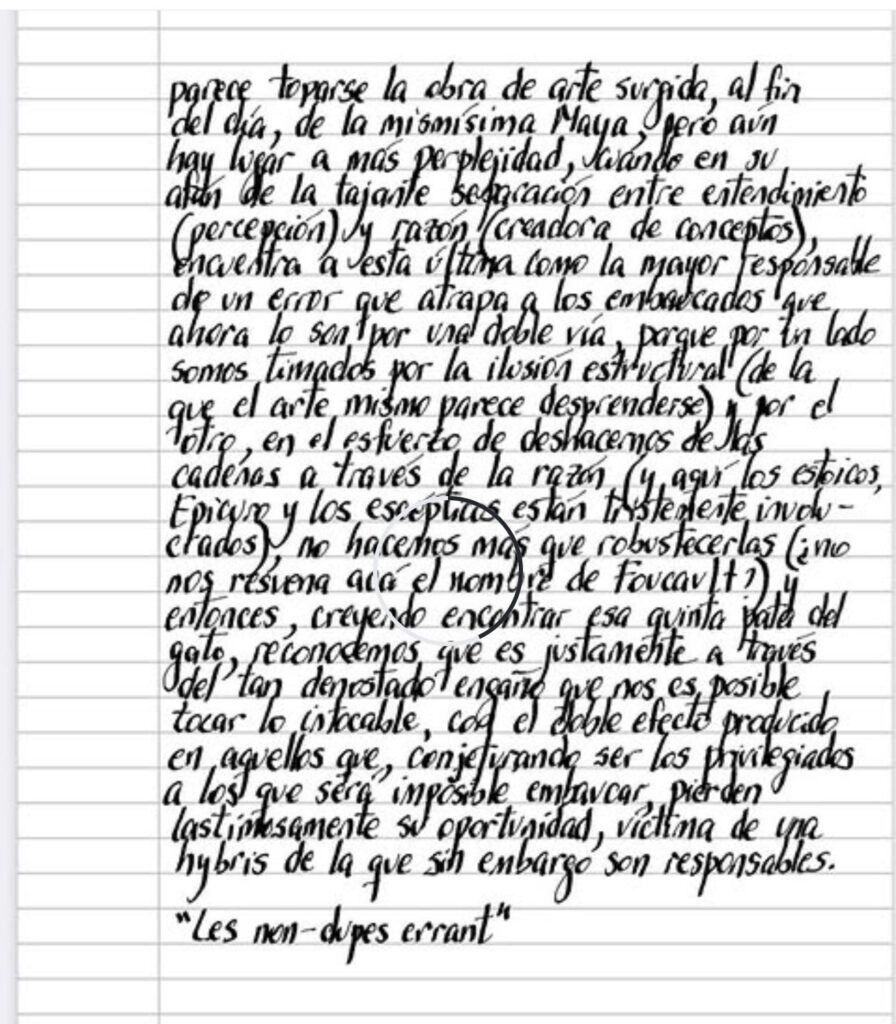 parece toparse la obra de arte surgida, al fin
del día, de la mismísima Maya, pero aún
hay lugar a más perplejidad, cuando en su
afán de la tajante separación entre entendimiento
(percepción) y razón (creadora de conceptos),
encuentra a esta última como la mayor responsable
de un error que atrapa a los embaucados que
ahora lo son por una doble vía, porque por un lado
somos timados por la ilusión estructural (de la
que el arte mismo parece desprenderse) y por el
otro, en el esfuerzo de deshacernos de las
cadenas a través de la razón (y aquí los estoicos,
Epicuro y los escépticos están tristemente involu-
crados), no hacemos más que robustecerlas (¿no
nos resuena acá el nombre de Foucault?) y
entonces, creyendo encontrar esa quinta pata del
gato, reconocemos que es justamente a través
del tan denostado engaño que nos es posible
tocar lo intocable, con el doble efecto producido
en aquellos que, conjeturando ser los privilegiados
a los que será imposible embaucar, pierden
lastimosamente su oportunidad, víctima de una
hybris de la que sin embargo son responsables.
"Les non-dupes errant"